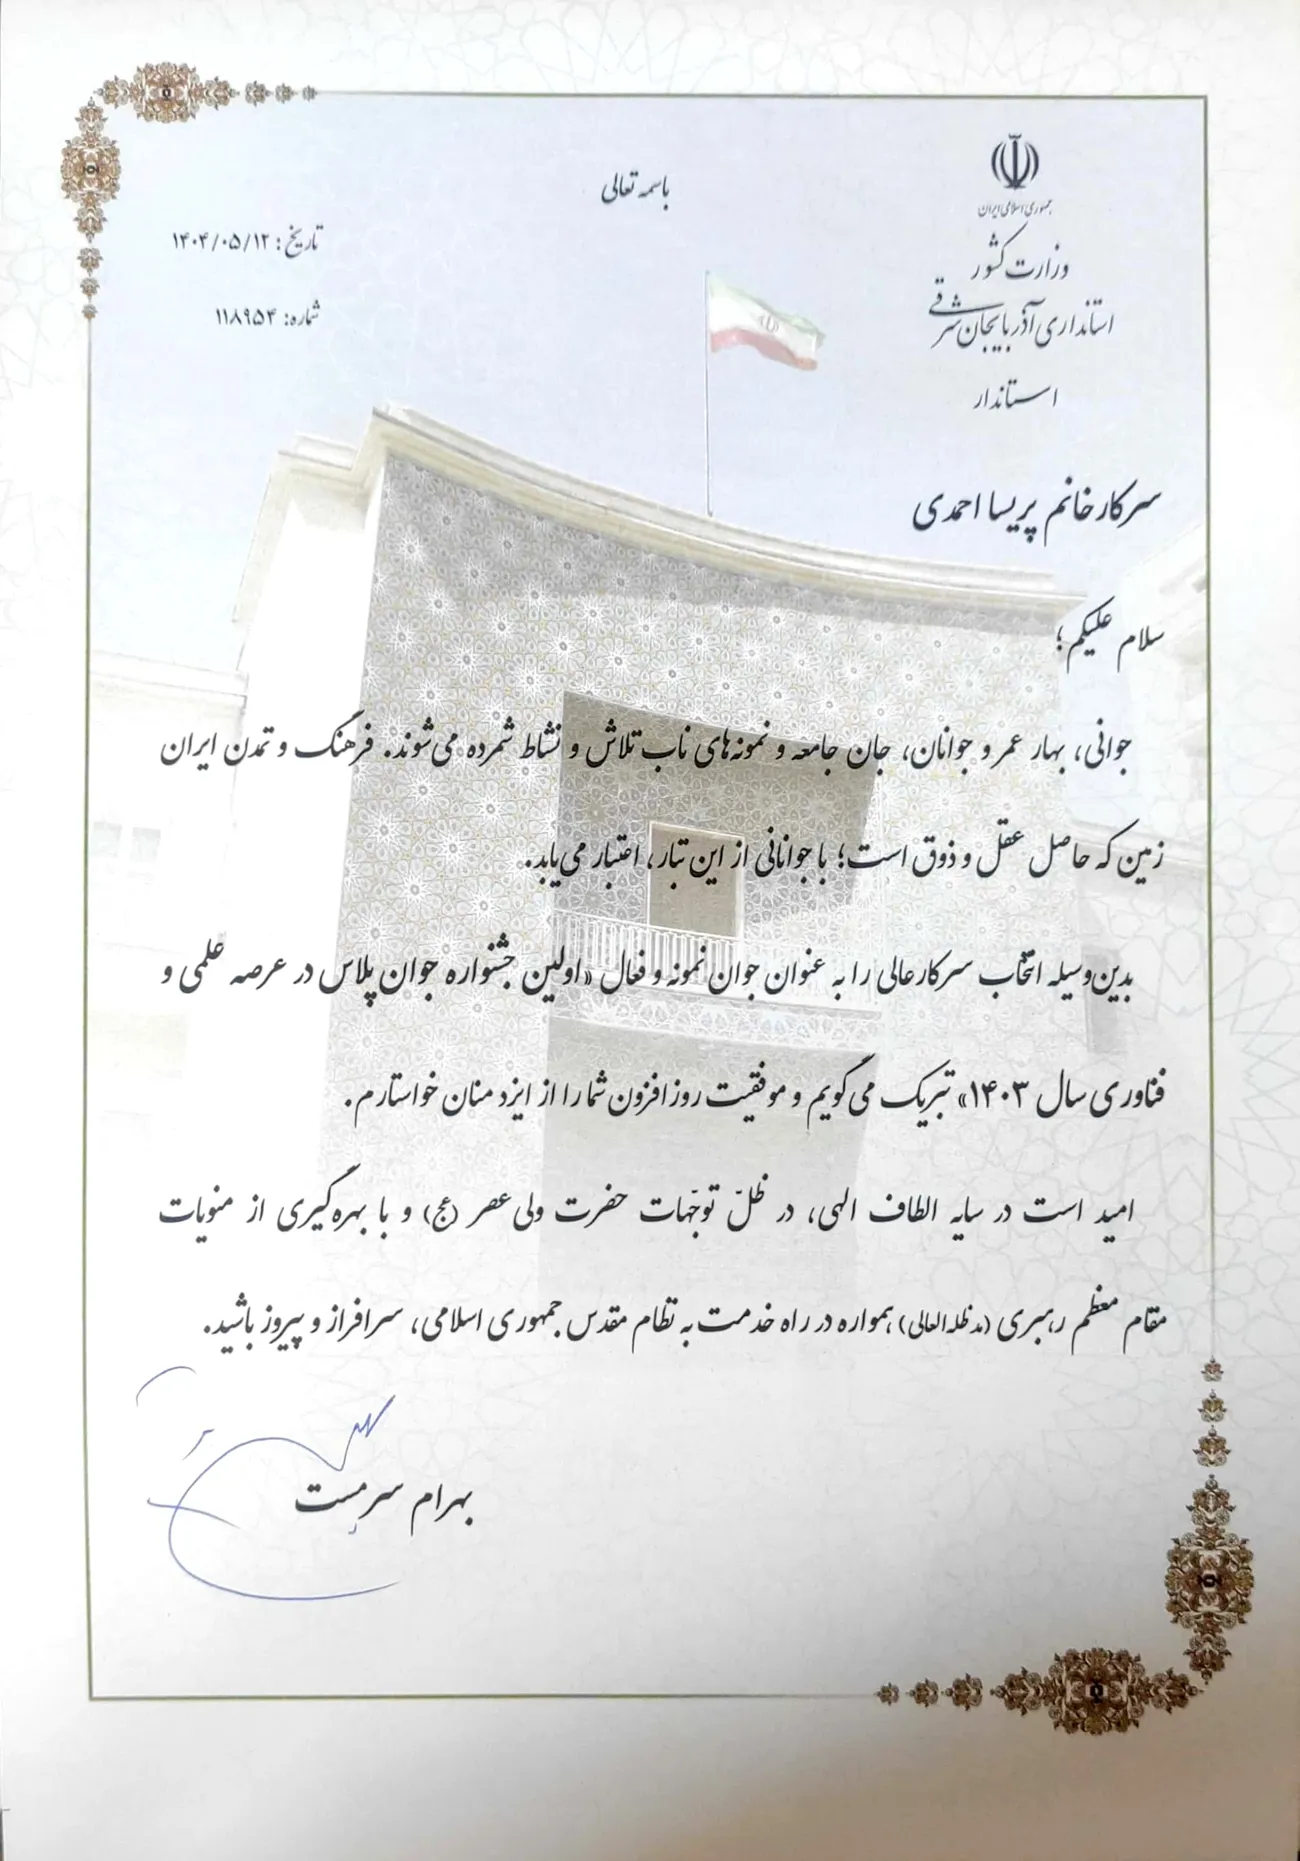 باسمه تعالی
جمهوری اسلامی ایران
وزارت کشور
استانداری آذربایجان شرقی
استاندار
تاریخ: ۱۴۰۴/۰۵/۱۲
شماره: ۱۱۸۹۵۴
سرکار خانم پریسا احمدی
سلام علیکم؛
جوانی، بهار عمر و جوانان، جان جامعه و نمونه‌های ناب تلاش و نشاط شمرده می‌شوند. فرهنگ و تمدن ایران
زمین که حاصل عقل و ذوق است؛ با جوانانی از این تبار، اعتبار می‌یابد.
بدین‌وسیله انتخاب سرکارعالی را به عنوان جوان نمونه و فعال «اولین جشنواره جوان پلاس در عرصه علمی و
فناوری سال ۱۴۰۳» تبریک می‌گویم و موفقیت روزافزون شما را از ایزد منان خواستارم.
امید است در سایه الطاف الهی، در ظلّ توجّهات حضرت ولی عصر (عج) و با بهره‌گیری از منویات
مقام معظم رهبری (مدظله‌العالی) همواره در راه خدمت به نظام مقدس جمهوری اسلامی، سرافراز و پیروز باشید.
بهرام سرمست